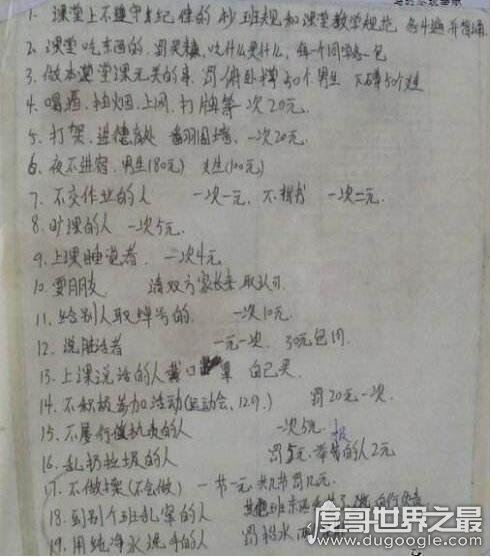 1. 课堂上不遵守纪律的 抄班规和课堂教学规范 各十遍并背诵
2. 课堂吃东西的, 罚买糖, 吃什么买什么, 每一个同学一包
3. 做本堂课无关的事 罚俯卧撑50个男生 下蹲50个女生
4. 喝酒、抽烟、上网、打牌等一次20元.
5. 打架、进德育处 翻围墙、一次20元.
6. 夜不进宿, 男生(180元) 女生(100元)
7. 不交作业的人 一次一元. 不带书 一次二元.
8. 旷课的人 一次5元.
9. 上课睡觉者. 一次4元
10. 耍朋友. 请双方家长来 取认可
11. 给别人取绰号的. 一次10元.
12. 说脏话者 一元一次. 30元包月.
13. 上课说话的人戴口罩 自己买.
14. 不积极参加活动(运动会、12.9.) 罚20元一次.
15. 不履行值执责的人 一次5元.
16. 乱扔垃圾的人 罚5元 举报的人2元
17. 不做操(不会做) 一节一元 共几节罚几元.
18. 到别个班乱窜的人
19. 用纯净水洗手的人 罚粉水
度哥世界之最
www.dugoogle.com